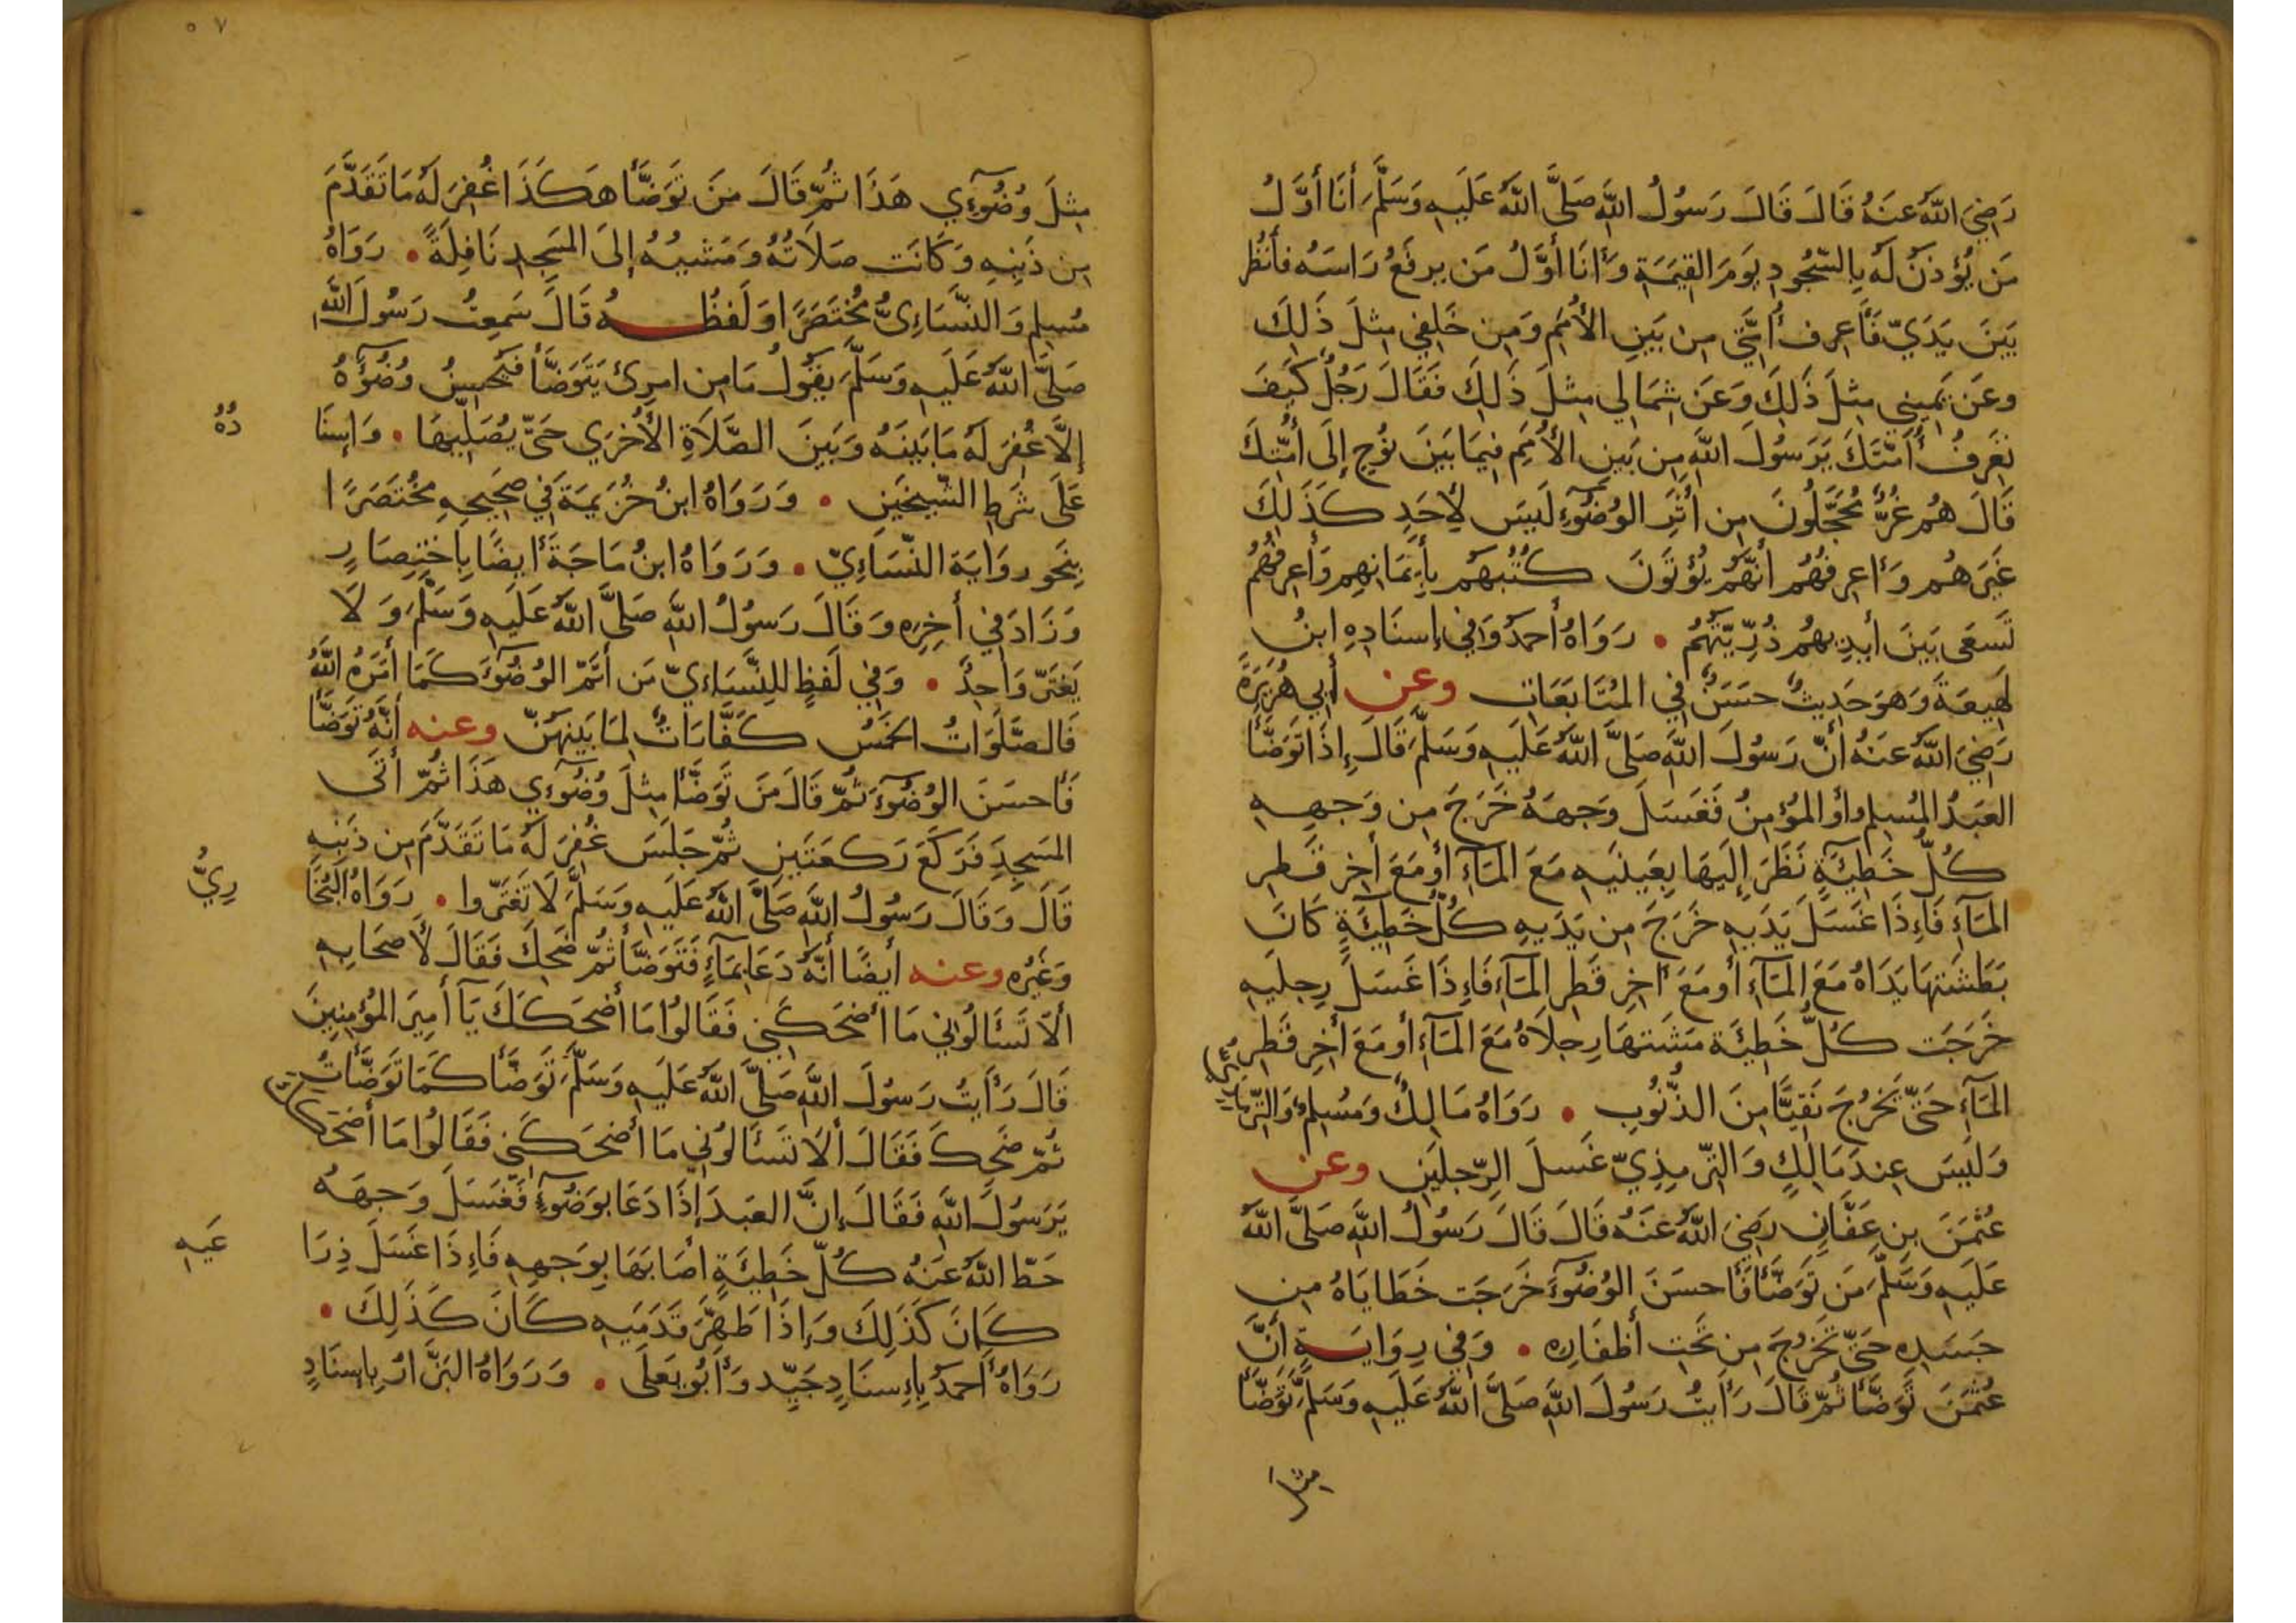 رَضِيَ اللَّهُ عَنهُ قَالَ قَالَ رَسُولُ اللَّهِ صَلَّى اللَّهُ عَلَيهِ وَسَلَّمَ أَنَا أَوَّلُ
مَن يُؤذَنُ لَهُ بِالسُّجُودِ يَومَ القِيَمَةِ وَأَنَا أَوَّلُ مَن يرفَعُ رَاسَهُ فأَنظُر
بَينَ يَدَيّ فَأَعرِف أُمَّتِي مِن بَينِ الأُمَمِ وَمِن خَلفِي مِثلَ ذَلِكَ
وعَن يَمِينِي مِثلَ ذَلِكَ وَعَن شِمَالِي مِثلَ ذَلِكَ فَقَالَ رَجُلٌ كَيفَ
تَعَرِفُ أُمَّتَكَ يَرَسُولَ اللَّهِ مِن بَينِ الأُمَمِ فِيمَا بَينَ نُوحٍ إِلَى أُمَّتِكَ
قَالَ هُم غُرٌّ مُحَجَّلُونَ مِن أَثَرِ الوُضُوءِ لَيسَ لأَحَدٍ كَذَلِكَ
غَيرَهُم وَأَعرِفُهُم أَنَّهُم يُؤتَونَ كُتُبَهُم بِأَيمَانِهِم وَأَعرِفُهُم
تَسعَى بَينَ أَيدِيهُم ذُرِّيَّتُهُم • رَوَاهُ أَحمَدُ وَفِي إِسنَادِهِ ابنُ
لَهِيعَةَ وَهوَ حَدِيثٌ حسَنٌ فِي المُتَابَعَاتِ وعن أَبِي هُرَيرَةَ
رَضِيَ اللَّهُ عنهُ أَنَّ رَسُولَ اللَّهِ صَلَّى اللَّهُ عَلَيهِ وَسَلَّمَ قَالَ إِذَا تَوَضَّأَ
العَبدُ المُسلِم أَو المُؤمِنُ فَغَسَلَ وَجهَهُ خَرَجَ مِن وَجهِهِ
كُلُّ خَطِيئَةٍ نَظَرَ إِلَيهَا بِعَينَيهِ مَعَ المَآءِ أَو مَعَ أَخِر قَطرِ
المَآءِ فَإِذَا غَسَلَ يَدَيهِ خَرَجَ مِن يَدَيهِ كُلُّ خَطِيئَةٍ كَانَ
بَطَشَتهَا يَدَاهُ مَعَ المَآءِ أَو مَعَ أَخِرِ قَطرِ المَآءِ فَإِذَا غَسَلَ رِجلَيهِ
خَرَجَت كُلُّ خَطِيئَة مَشَتهَا رِجلَاهُ مَعَ المَآءِ أَو مَعَ أَخِرِ قَطرِ
المَآءِ حَتَّى يَخرُجَ نَقِيًّا مِنَ الذُّنُوبِ • رَوَاهُ مَالِكٌ وَمُسلِمٌ وَالتِّرمِذِيُّ
وَلَيسَ عِندَ مَالِكٍ وَالتِّرمِذِيّ غَسلَ الرِّجلَينِ وعن
عُثمَنَ بنِ عَفَّانِ رَضِيَ اللَّهُ عَنهُ قَالَ قَالَ رَسُولُ اللَّهِ صَلَّى اللَّهُ
عَلَيهِ وَسَلَّمَ مَن تَوَضَّأَ فَأَحسَنَ الوُضُوءَ خَرَجَت خَطَايَاهُ مِن
جَسَدِهِ حَتَّى تَخرُجَ مِن تَحتِ أَظفَارِهِ • وَفِي رِوَايَةٍ أَنَّ
عُثمَنَ تَوَضَّأَ ثُمَّ قَالَ رَأَيتُ رَسُولَ اللَّهِ صَلَّى اللَّهُ عَلَيهِ وَسَلَّمَ تَوَضَّأَ
مِثلَ
٥٧
مِثلَ وُضُوءِي هَذَا ثُمَّ قَالَ مَن تَوَضَّأَ هَكَذَا غُفِرَ لَهُ مَا تَقَدَّمَ
مِن ذَنبِهِ وَكَانَت صَلَاتُهُ وَمَشيُهُ إِلَى المَسجِدِ نَافِلَةً • رَوَاهُ
مُسلِم وَالنَّسَاءِيُّ مُختَصَرًا وَلَفظُهُ قَالَ سَمِعتُ رَسُولَ اللَّهِ
صَلَّى اللَّهُ عَلَيهِ وَسَلَّمَ يقُولُ مَا مِن امرِئ يَتَوَضَّأ فَيُحسِنُ وُضُوءَهُ
إِلَّا غُفِرَ لَهُ مَا بَينَهُ وَبَينَ الصَّلَاةِ الأُخرَي حَتَّى يُصَلِّيهَا • وَإِسنَا
دُهُ
عَلَى شَرطِ الشَّيخَينِ • وَرَوَاهُ ابنُ خُزَيمَةَ فِي صَحِيحِهِ مُختَصَرًا
بِنَحوِ روَايَة النّسَاءِيّ • وَرَوَاهُ ابنُ مَاجَةَ أَيضًا بِاختِصَارٍ
وَزَادَ فِي أَخِرِهِ وَقَالَ رَسُولُ اللَّهِ صَلَّى اللَّهُ عَلَيهِ وَسَلَّمَ وَلَا
يَغتَرّ وَاحِدٌ • وَفِي لَفظٍ لِلنَّسَاءِيّ مَن أَتَمَّ الوُضُوءَ كَمَا أَمَرَهُ اللَّهُ
فَالصَّلَوَاتُ الخَمسُ كَفَّارَاتٌ لِمَا بَينَهُنَّ وعنه أَنَّهُ تَوَضَّأَ
فَأَحسَنَ الوُضُوءَ ثُمَّ قَالَ مَن تَوَضَّأَ مِثلَ وُضُوءِي هَذَا ثُمَّ أَتَى
المَسجِدَ فَرَكَعَ رَكعَتَينِ ثُمَّ جَلَسَ غُفِرَ لَهُ مَا تَقَدَّمَ مِن ذَنبِهِ
قَالَ وَقَالَ رَسُولُ اللَّهِ صَلَّى اللَّهُ عَلَيهِ وَسَلَّمَ لَا تَغتَرّوا • رَوَاهُ البُخَا
رِيُّ
وَغَيرُه وعنه أَيضًا أَنَّهُ دَعَا بِمَآءٍ فَتَوَضَّأَ ثُمَّ ضَحِكَ فَقَالَ لأَصحَابِهِ
أَلَا تَسأَلُونِي مَا أَضحَكَنِي فَقَالُوا مَا أَضحَكَكَ يَآ أَمِيرَ المُؤمِنِينَ
قَالَ رَأَيتُ رَسُولَ اللَّهِ صَلَّى اللَّهُ عَلَيهِ وَسَلَّمَ تَوَضَّأَ كَمَا تَوَضَّأتُ
ثُمَّ ضَحِكَ فَقَالَ أَلَا تَسأَلُونِي مَا أَضحَكَنِي فَقَالُوا مَا أَضحَكَكَ
يَرَسُولَ اللَّهِ فَقَالَ إِنَّ العَبدَ إِذَا دَعَا بوَضُوءٍ فَغَسَلَ وَجهَهُ
حَطّ اللَّهُ عَنهُ كُلّ خَطِيئَةٍ أَصَابَهَا بِوَجهِهِ فَإِذَا غَسَلَ ذِرَا
عَيهِ
كَانَ كَذَلِكَ وَإِذَا طَهَّرَ قَدَمَيهِ كَانَ كَذَلِكَ •
رَوَاهُ أَحمَدُ بِإِسنَادٍ جَيِّد وَأَبُو يَعلَى • وَرَوَاهُ البَزَّارُ بِإِسنَادٍ